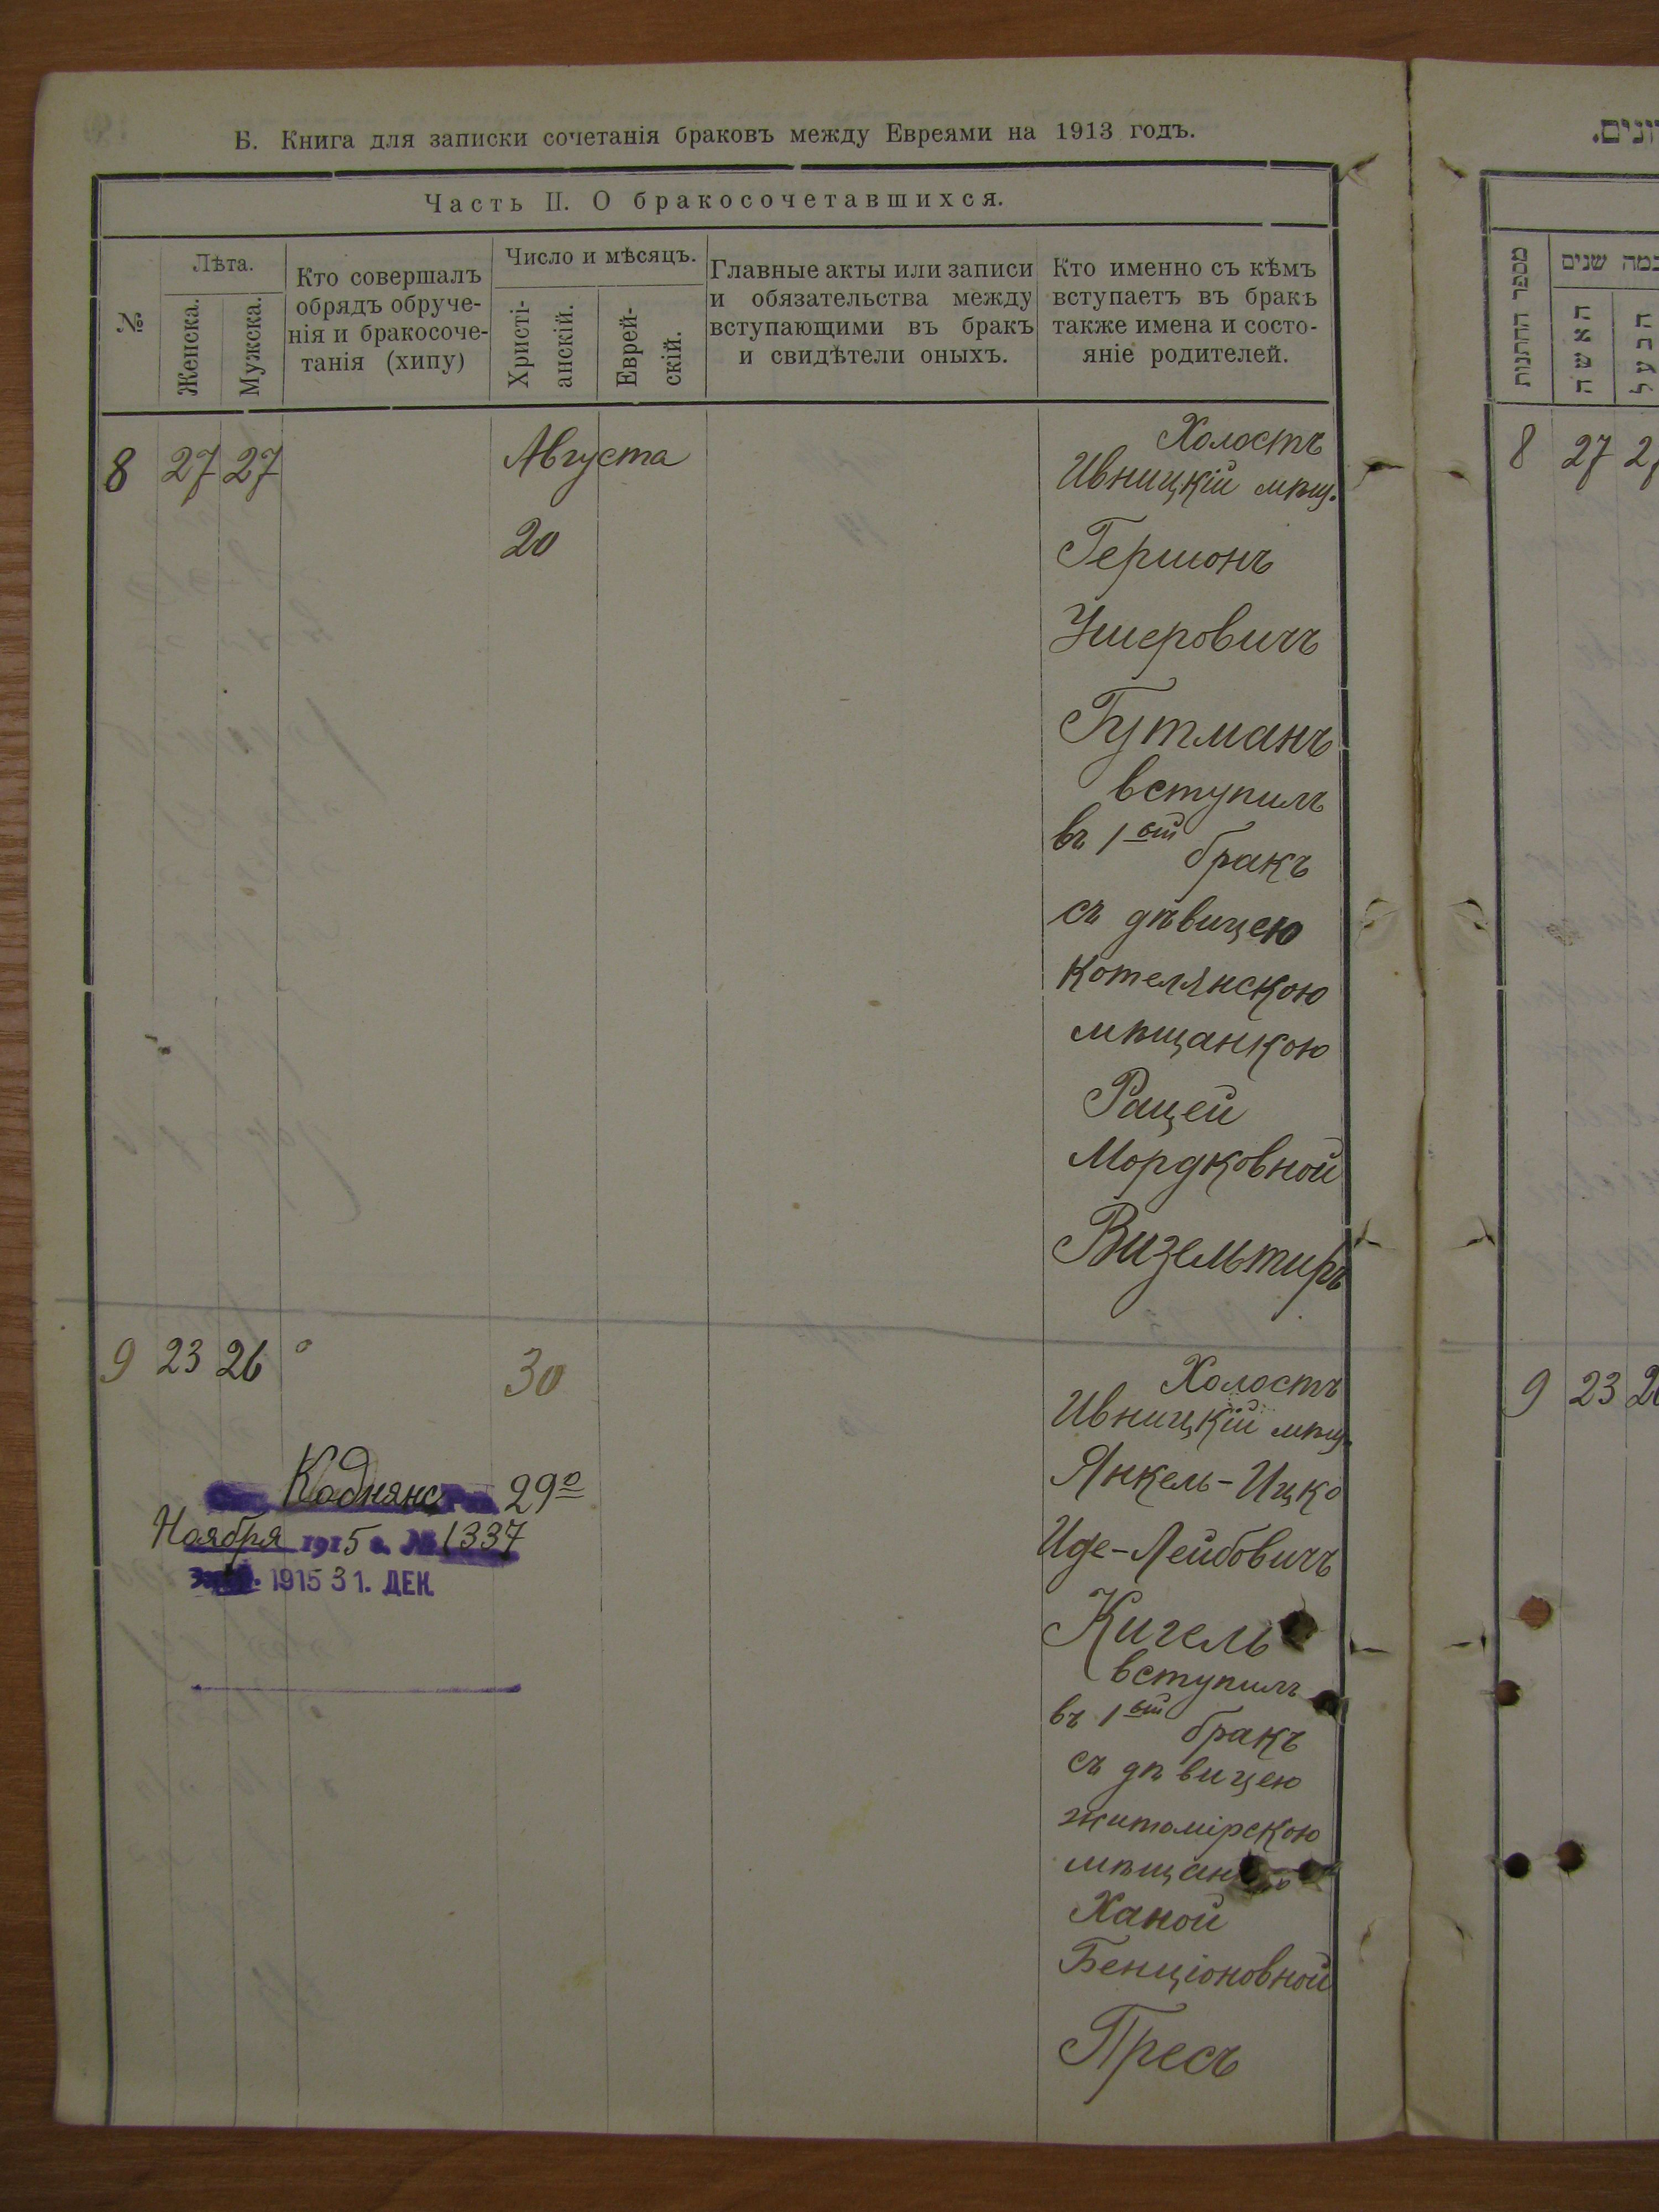 Б. Книга для записки сочетанія браковъ между Евреями на 1913 годъ.
Часть II. О бракосочетавшихся.
№
Лѣта.
Женска.
Мужска.
Кто совершалъ
обрядъ обруче-
нія и бракосоче-
танія (хипу)
Число и мѣсяцъ.
Христі-
анскій.
Еврей-
скій.
Главные акты или записи
и обязательства между
вступающими въ бракъ
и свидѣтели оныхъ.
Кто именно съ кѣмъ
вступаетъ въ бракъ
также имена и состо-
яніе родителей.
8 27 27 Августа
20
Холостъ
Ивницкій мѣщ.
Гершонъ
Ушеровичъ
Гутманъ
вступилъ
въ 1ый
бракъ
съ дѣвицею
Котелянскою
мѣщанкою
Рацей
Мордковной
Визельтиръ
9 23 26 30
Холостъ
Ивницкій мѣщ.
Янкель-Ицко
Иде-Лейбовичъ
Кигель
вступилъ
въ 1ый
бракъ
съ дѣвицею
житомірскою
Ханой
Бенціоновной
Пресъ
Коднянс 29º
Ноября 1915 г. № 1337
1915 31. ДЕК.
מספר החתנות
שנים
האשה
הבעל
8 27
9 23